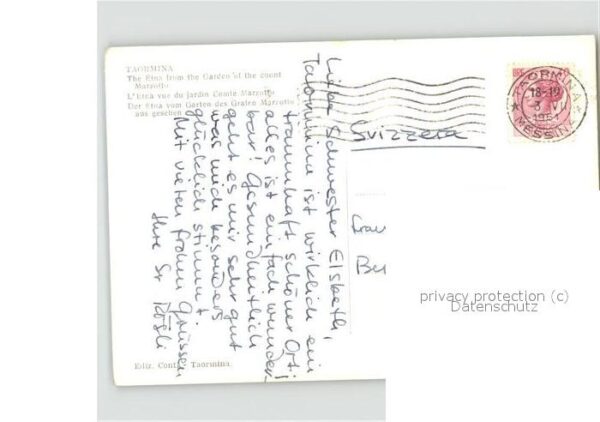 TAORMINA
The Etna from the Garden of the count
Marzotto
L'Etna vue du jardin Comte Marzotto
Der Etna vom Garten des Grafen Marzotto
aus gesehen
Liebe Schwester Elsbeth,
Taormina ist wirklich ein
traumhaft schöner Ort;
alles ist einfach wunder-
bar! Gesundheitlich
geht es mir sehr gut
was mich besonders
glücklich stimmt.
Mit vielen frohen Grüssen
Ihre Sr
Ediz. Taormina.
TAORMINA
18-19
3 VII
1961
MESSINA
Svizzera
Frau
Be
privacy protection (c)
Datenschutz